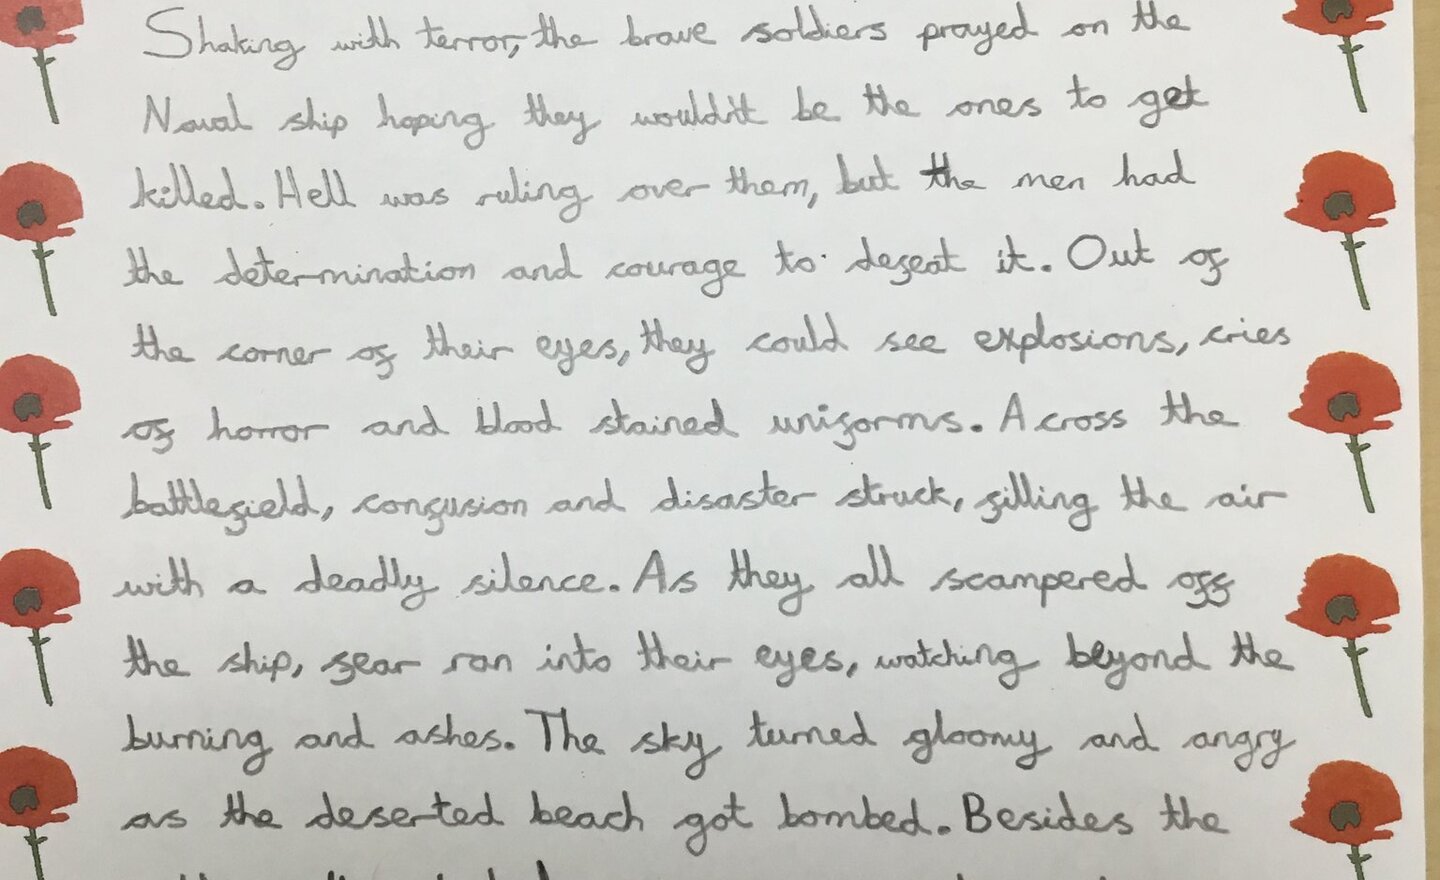 Shaking with terror, the brave soldiers prayed on the
Naval ship hoping they wouldn't be the ones to get
killed. Hell was ruling over them, but the men had
the determination and courage to defeat it. Out of
the corner of their eyes, they could see explosions, cries
of horror and blood stained uniforms. Across the
battlefield, confusion and disaster struck, filling the air
with a deadly silence. As they all scampered off
the ship, fear ran into their eyes, watching beyond the
burning and ashes. The sky turned gloomy and angry
as the deserted beach got bombed. Besides the